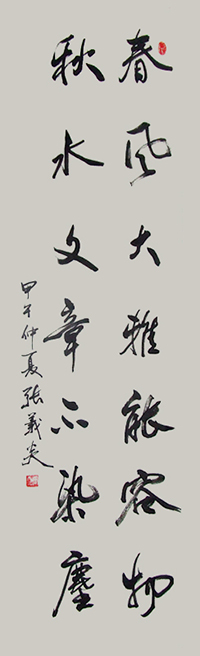 春风大雅能容物
秋水文章不染尘
甲午仲夏张义炎